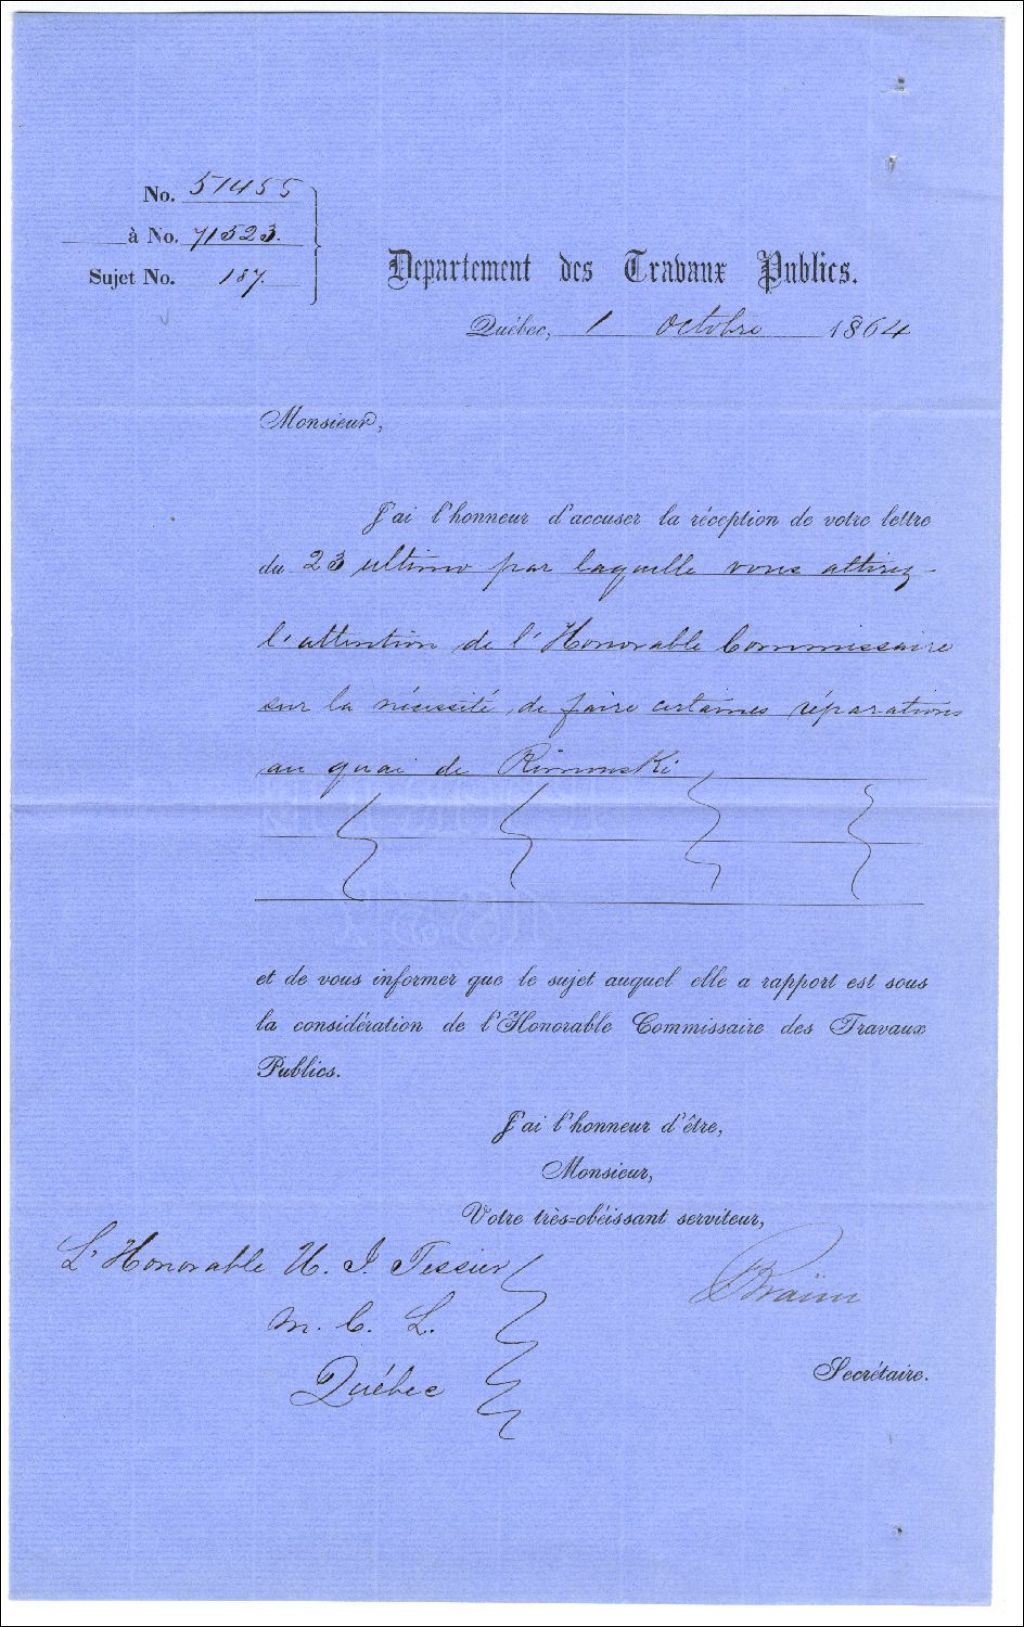 No. 51455
à No. 71523.
Sujet No. 187.
Departement des Travaux Publics.
Québec, 1 Octobre 1864
Monsieur,
J'ai l'honneur d'accuser la réception de votre lettre
du 23 ultimo par laquelle vous attirez
l'attention de l'Honorable Commissaire
sur la nécessité de faire certaines réparations
au quai de Rimouski
et de vous informer que le sujet auquel elle a rapport est sous
la considération de l'Honorable Commissaire des Travaux
Publics.
J'ai l'honneur d'être,
Monsieur,
Votre très=obéissant serviteur,
L'Honorable U. J. Tessier
M. C. L.
Québec
Secrétaire.